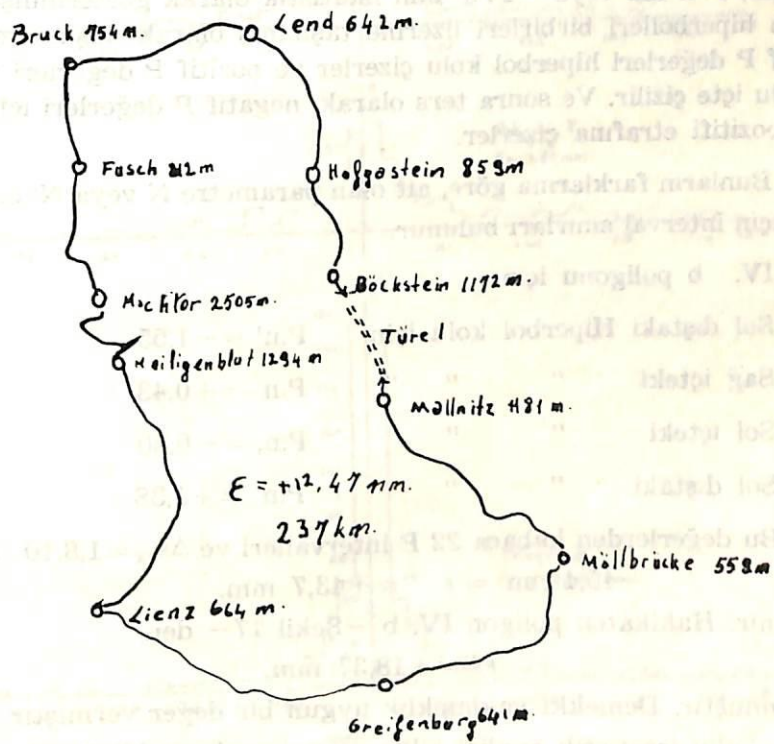 Bruck 754m.
Lend 642m.
Fusch 812m
Hofgastein 859m
Hochtor 2505m.
Böckstein 1172m.
Türel
Heiligenblut 1294m
Mallnitz 1181m.
ε = +12,47 mm.
237 km.
Möllbrücke 559m
Lienz 664 m.
Greifenburg 641m.